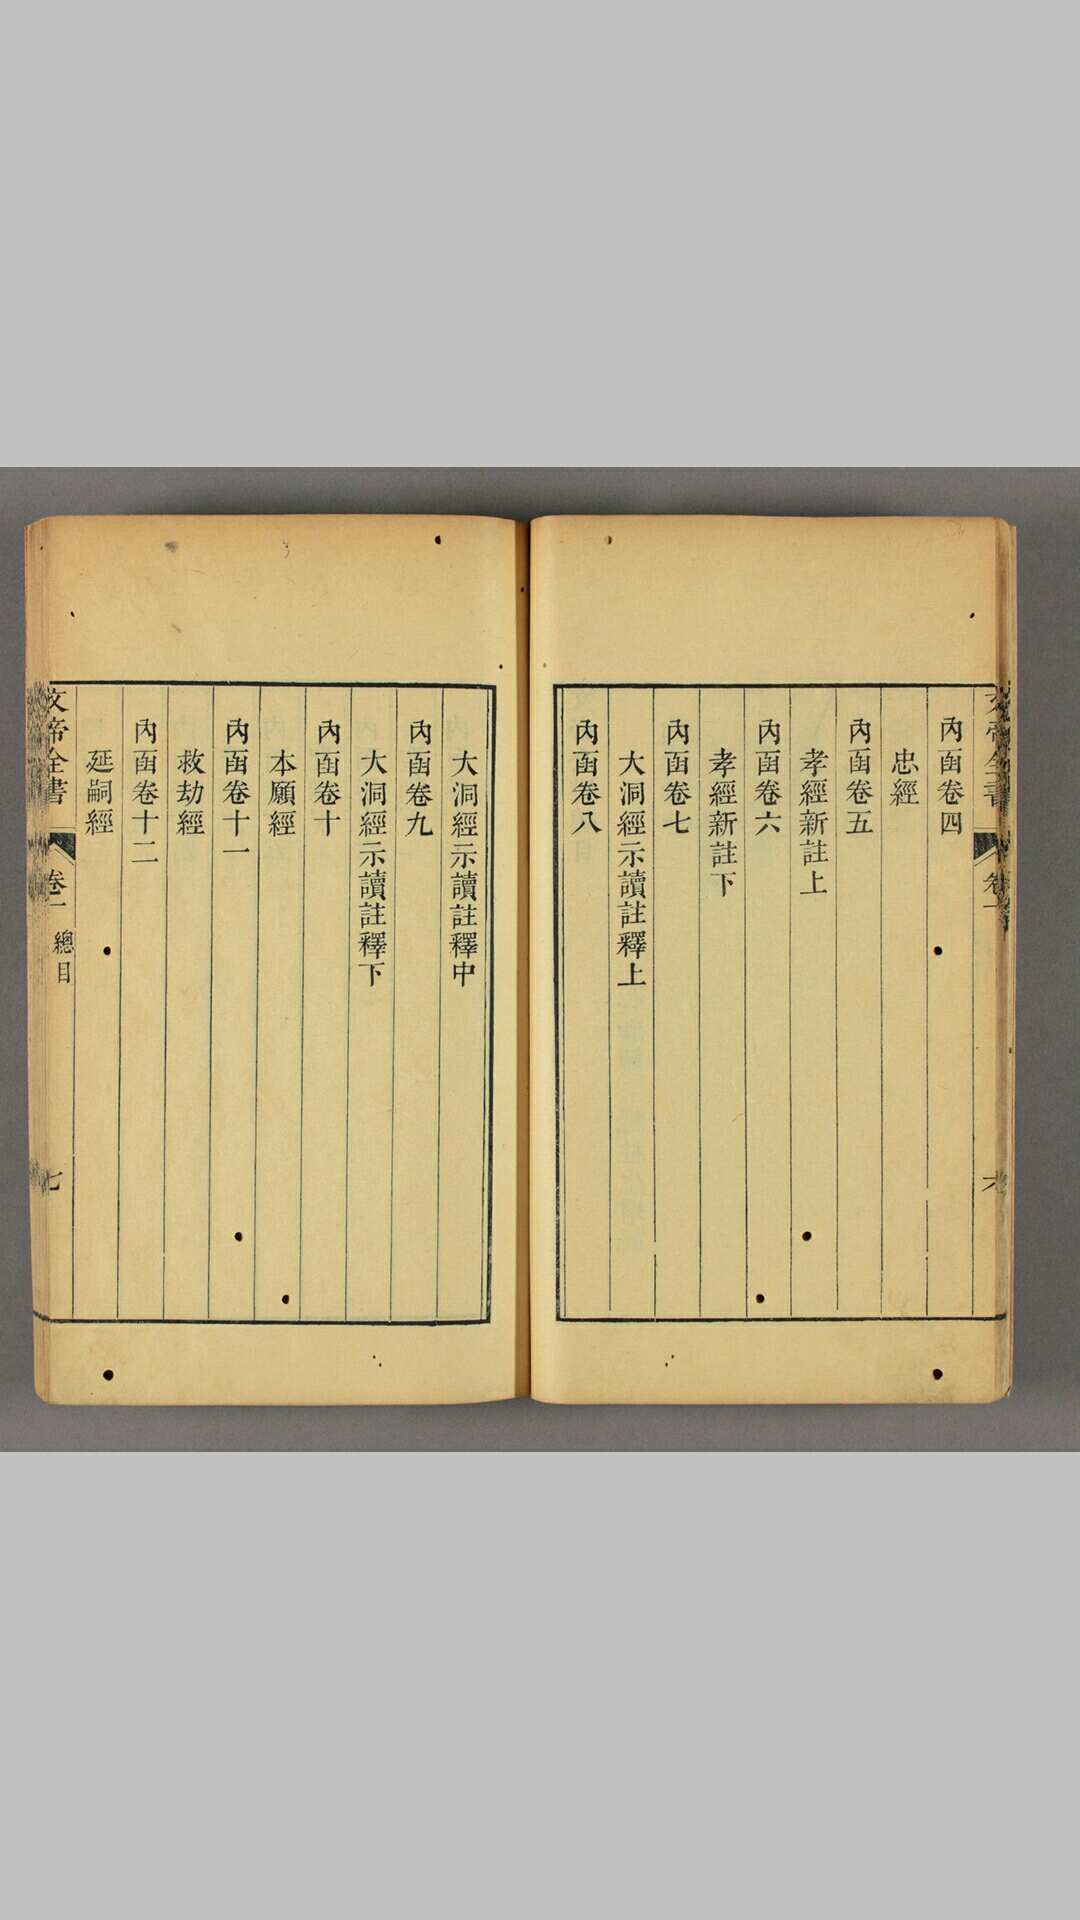 內函卷四
忠經
內函卷五
孝經新註上
內函卷六
孝經新註下
內函卷七
大洞經示讀註釋上
內函卷八
大洞經示讀註釋中
內函卷九
大洞經示讀註釋下
內函卷十
本願經
內函卷十一
救劫經
內函卷十二
延嗣經
文帝全書
卷一
總目
七